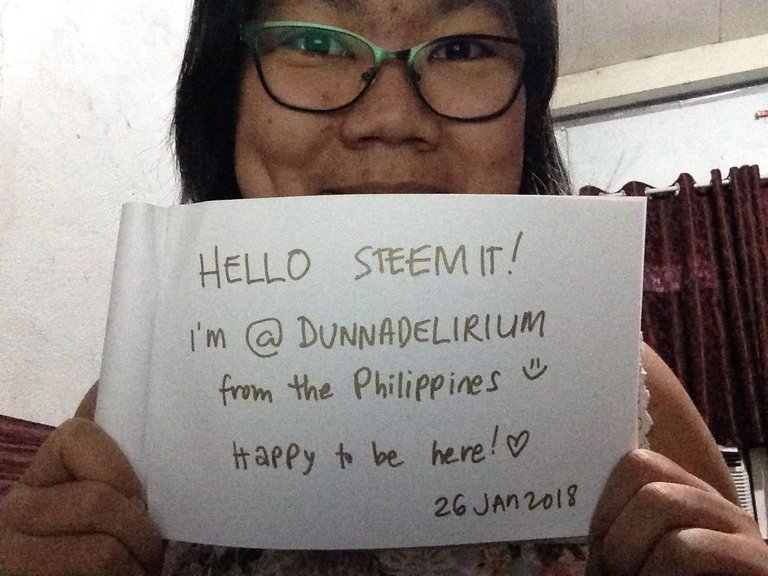 HELLO STEEMIT!
I'm @DUNNADELIRIUM
from the Philippines
Happy to be here!
26 JAN 2018